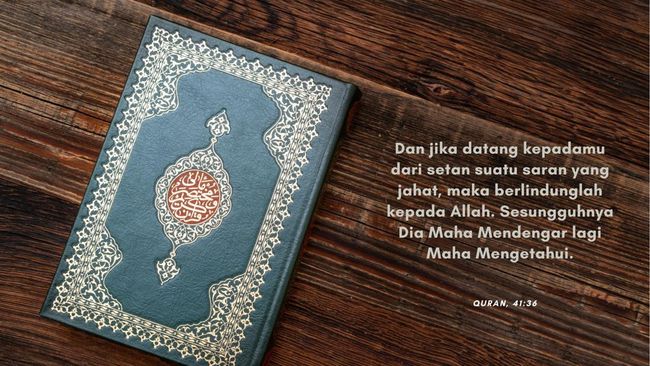 Dan jika datang kepadamu
dari setan suatu saran yang
jahat, maka berlindunglah
kepada Allah. Sesungguhnya
Dia Maha Mendengar lagi
Maha Mengetahui.
QURAN, 41:36